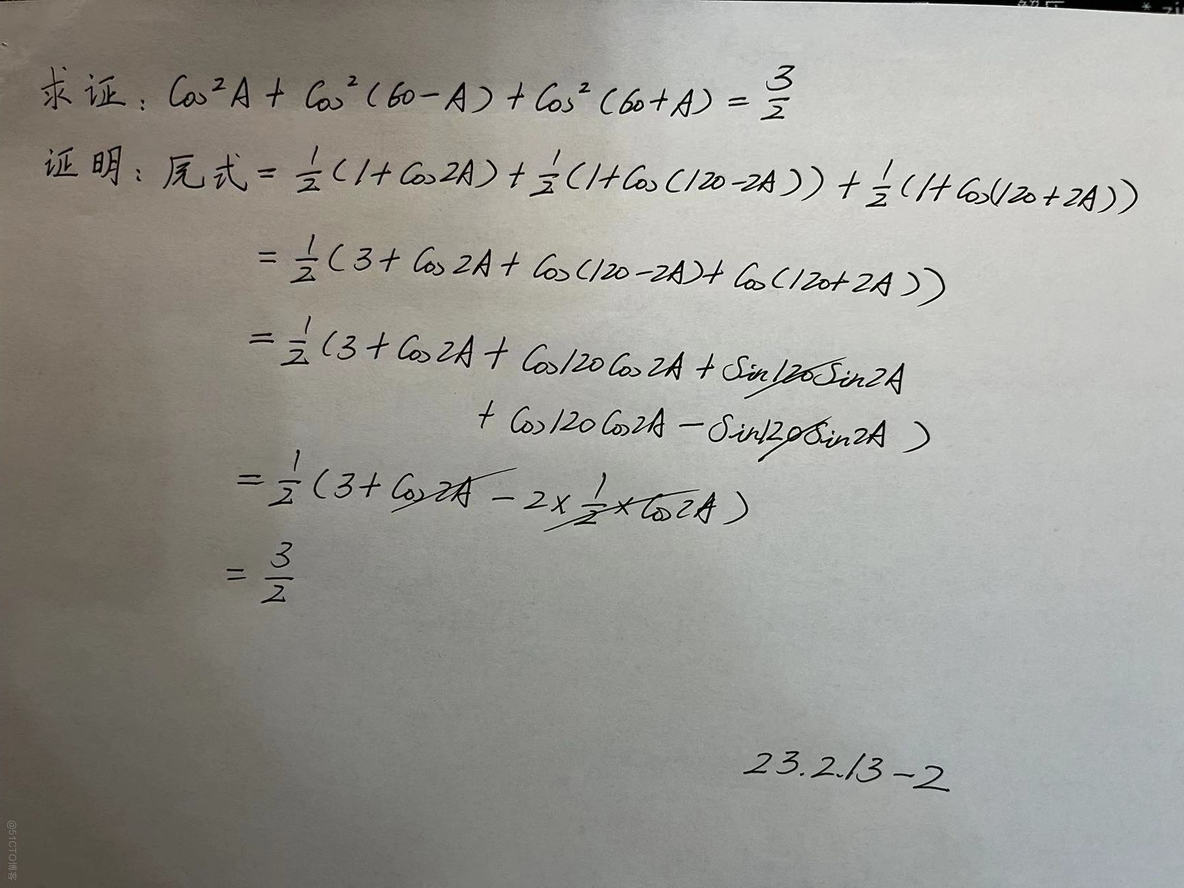 求证: Cos²A + Cos²(60-A) + Cos²(60+A) = 3/2
证明: 原式 = 1/2(1+Cos2A) + 1/2(1+Cos(120-2A)) + 1/2(1+Cos(120+2A))
= 1/2(3 + Cos2A + Cos(120-2A) + Cos(120+2A))
= 1/2(3 + Cos2A + Cos120Cos2A + Sin120Sin2A
+ Cos120Cos2A - Sin120Sin2A)
= 1/2(3 + Cos2A - 2×1/2×Cos2A)
= 3/2
23.2.13-2
@51CTO博客